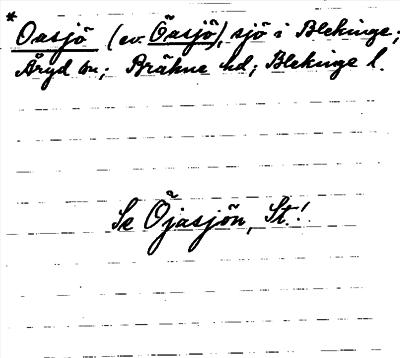 * Oasjö (ev. Öasjö), sjö i Blekinge;
Åryd sn; Bräkne hd; Blekinge l.
Se Öjasjön, St.!